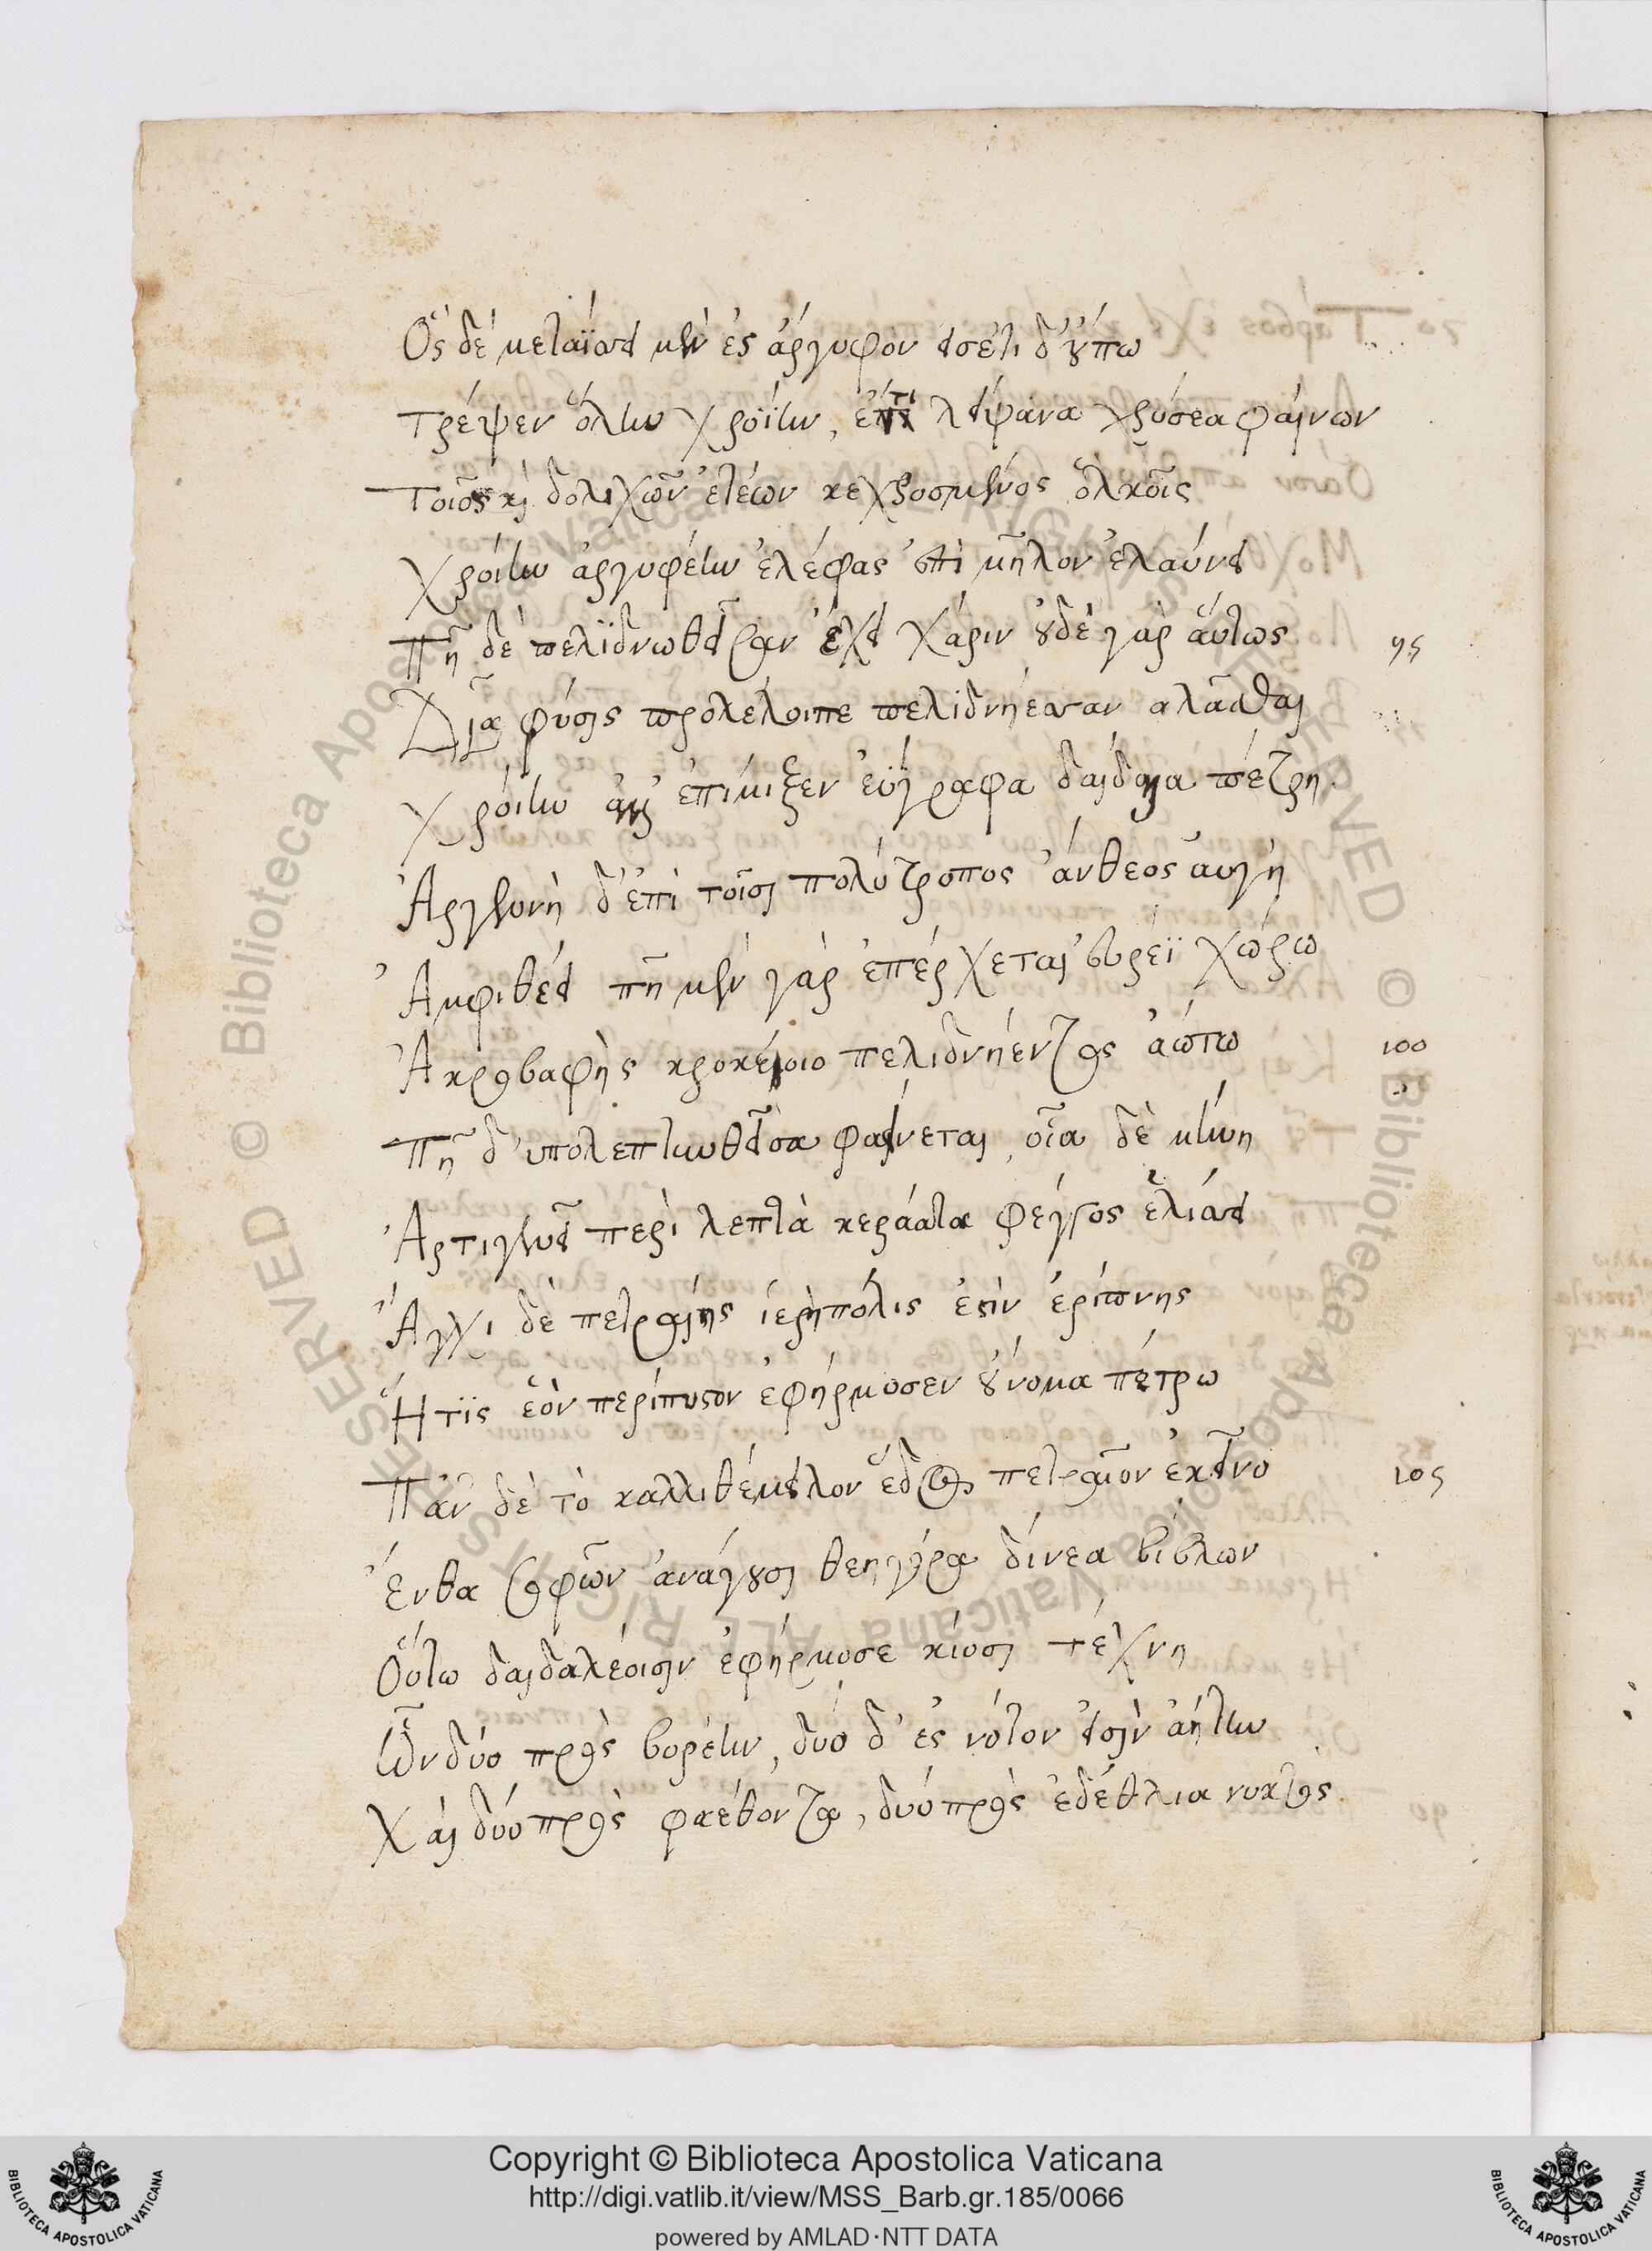 Ὃς δέ μεταΐσσει μὲν ἐς ἄργυφον εἰσέτι δ' οὔπω
τρέψεν ὅλην χροίην, ἔτι λείψανα χρύσεα φαίνων
Τοῖος καὶ δολιχῶν ἐτέων κεχροσμένος ὁλκοῖς
χροίην ἀργυφέην ἐλέφας ἐπὶ μῆλον ἐλαύνει
Πῆ δὲ πελϊδνωθεῖσαν ἔχει χάριν οὐδὲ γὰρ αὔτως 95
Δῖα φύσις προλέλοιπε πελιδνήεσσαν αλᾶσθαι
χροίην ἀλλ' ἐπίμιξεν ἐΰγραφα δαίδαλα πέτρη.
Ἀργεννὴ δ' ἐπὶ τοῖσι πολύτροπος ἄνθεος αὐγὴ
Ἀμφιθέει πῆ μὲν γὰρ ἐπέρχεται εὐρέϊ χώρω
Ἀκροβαφὴς κροκέοιο πελιδνήεντος ἀώτω 100
Πῆ δ' ὑπολεπτυνθεῖσα φαείνεται, οἷα δὲ μήνη
Ἀρτιγενεῖ περὶ λεπτὰ κεράατα φέγγος ἑλίσσει
Ἄγχι δὲ πετραίης ἱερὴ πόλις ἐστὶν ἐρίπνης
Ἥτις ἑὸν περίπυστον ἐφήρμοσεν οὔνομα πέτρω
Πᾶν δὲ τὸ καλλιθέμειλον ἕδος πετραῖον ἐκεῖνο 105
Ἔνθα σοφῶν ἀνάγουσι θεηγόρα δίνεα βίβλων
Ὀκτὼ δαιδαλέοισιν ἐφήρμοσε κίοσι τέχνη
Ὧν δύο πρὸς βορέην, δύο δ' ἐς νότον εἰσὶν ἀήτην
Χαὶ δύο πρὸς φαέθοντα, δύο πρὸς ἐδέθλια νυκτός.
Copyright © Biblioteca Apostolica Vaticana
http://digi.vatlib.it/view/MSS_Barb.gr.185/0066
powered by AMLAD·NTT DATA
BIBLIOTECA APOSTOLICA VATICANA
BIBLIOTECA APOSTOLICA VATICANA